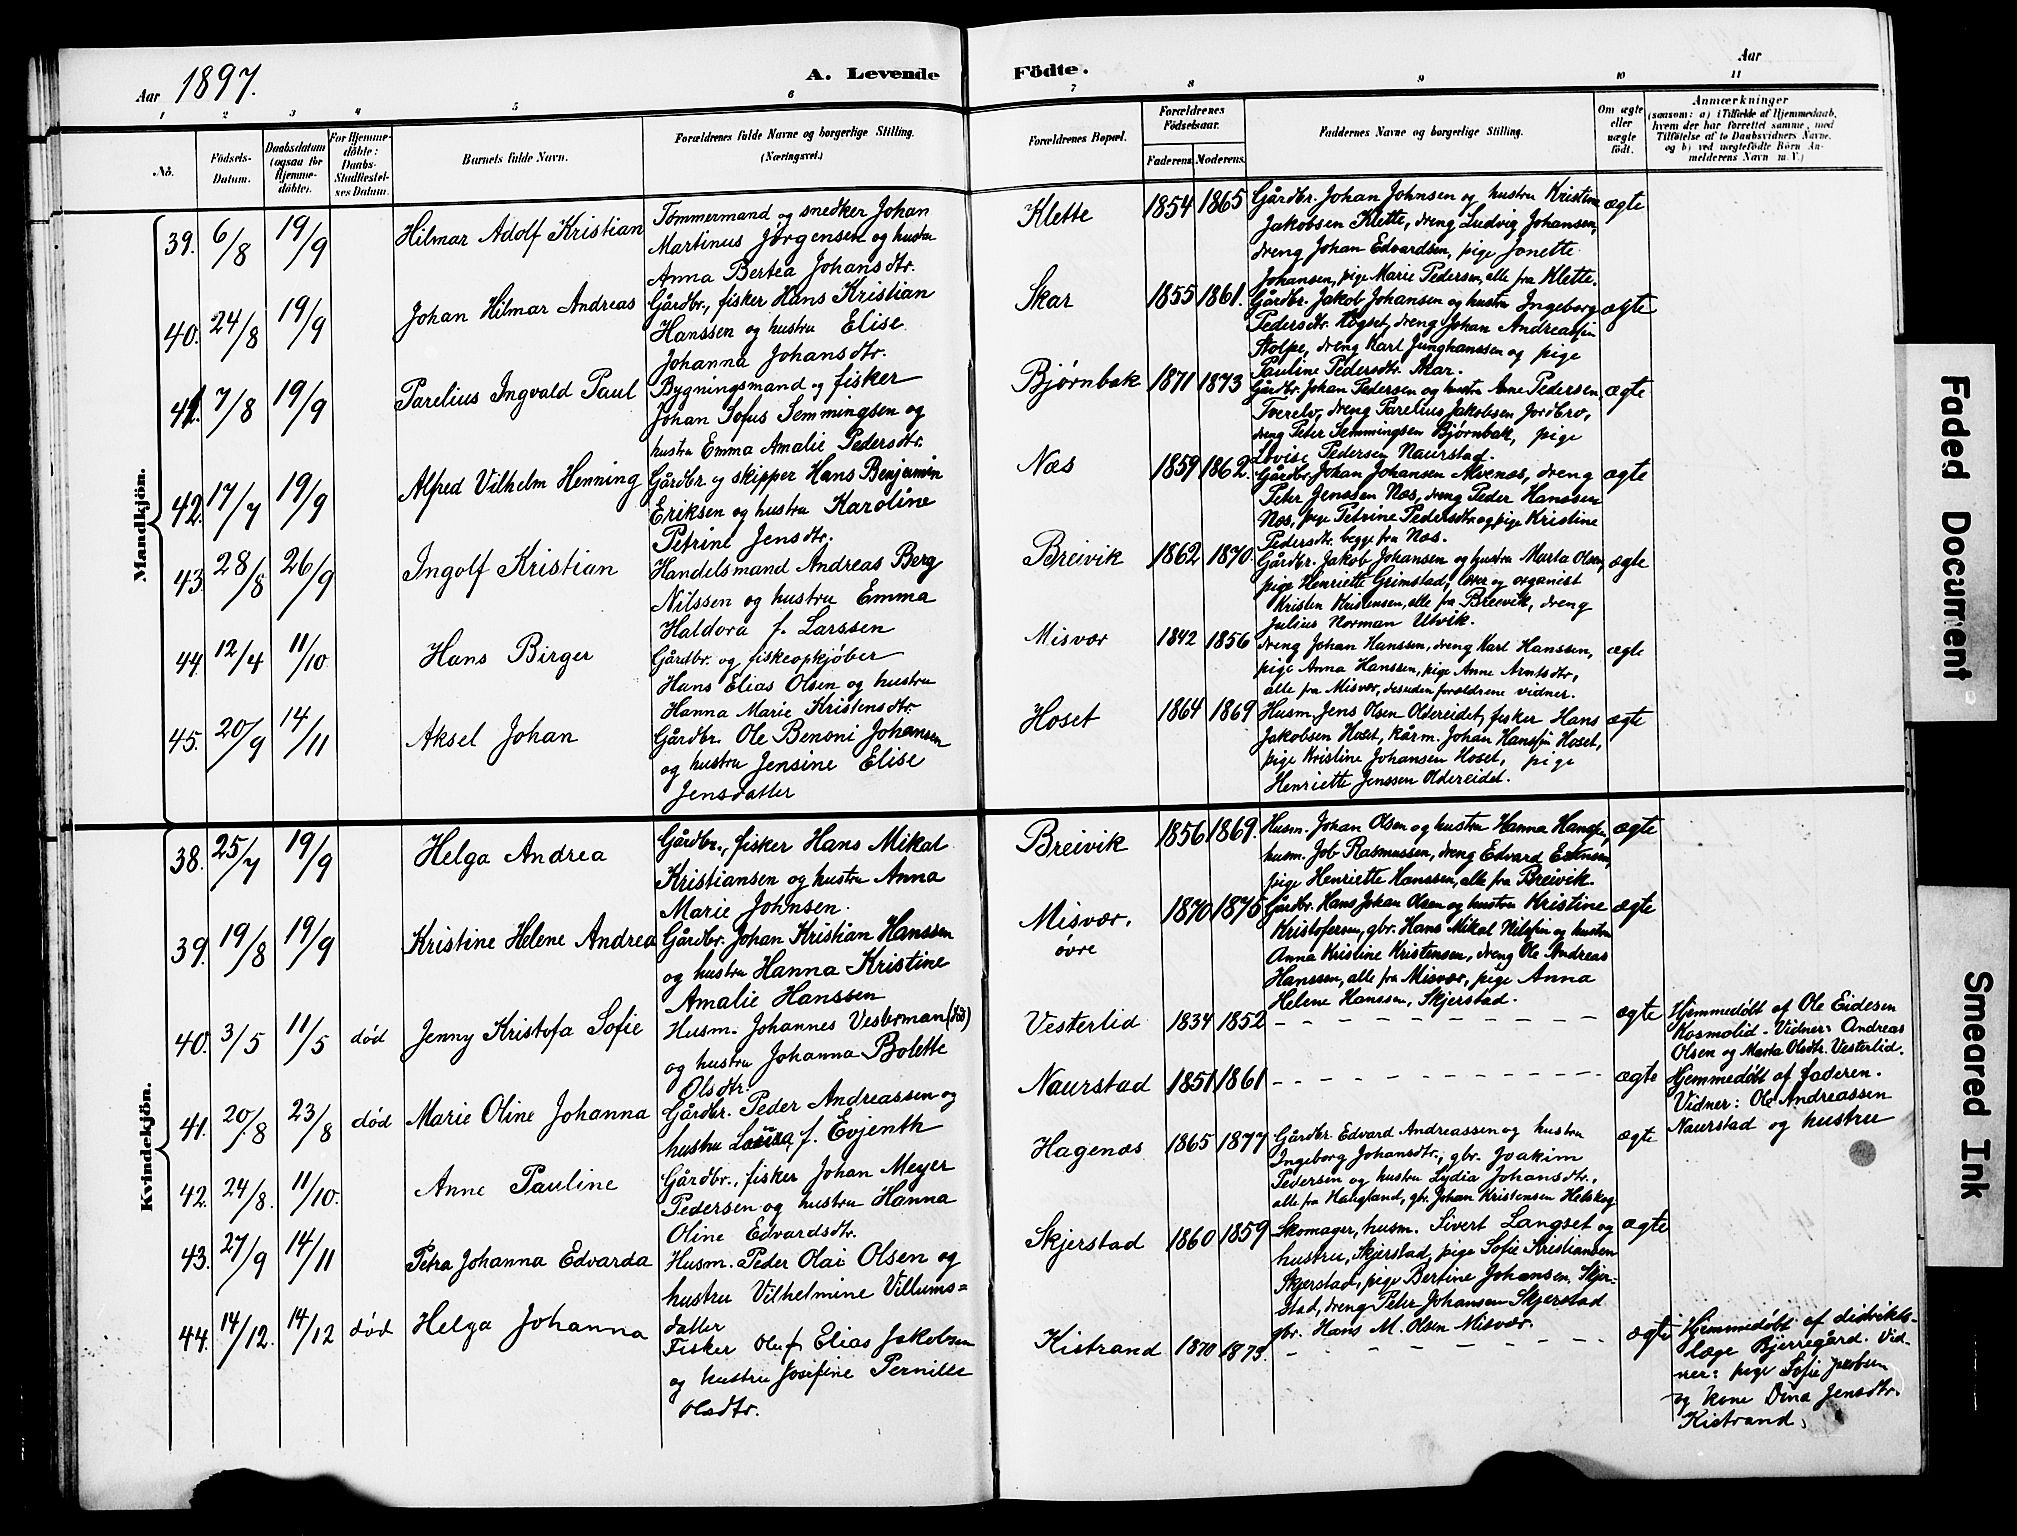 Aar 1897.
A. Levende Födte.
Aar
1 2 3 4 5 6 7 8 9 10 11
No.
Födsels-Datum.
Daabsdatum (ogsaa for Hjemme-döbte).
For Hjemme-döbte: Daabs-Stadfæstel-ses Datum.
Barnets fulde Navn.
Forældrenes fulde Navne og borgerlige Stilling. (Næringsvei.)
Forældrenes Bopæl.
Forældrenes Födselsaar.
Faderens. Moderens.
Faddernes Navne og borgerlige Stilling.
Om ægte eller uægte födt.
Anmærkninger
(saasom: a) i Tilfælde af Hjemmedaab,
hvem der har forrettet samme, med
Tilföielse af to Daabsvidners Navne,
og b) ved uægtefödte Börn An-
melderens Navn m. V.)
Mandkjön.
39. 6/8 19/9 Hilmar Adolf Kristian
Tømmermand og snedker Johan
Martinus Jørgensen og hustru
Anna Bertea Johansdtr.
Klette 1854 1865
Gårdbr. Johan Johnsen og hustru Kristina
Jakobsen Klette, dreng Ludvig Johansen,
dreng Johan Edvardsen, pige Jonette
Johansen, pige Marie Pedersen, alle fra Klette.
ægte
40. 24/8 19/9 Johan Hilmar Andreas
Gårdbr., fisker Hans Kristian
Hanssen og hustru Elise
Johanna Johansdtr.
Skar 1855 1861.
Gårdbr. Jakob Johansen og hustru Ingeborg
Pedersdtr. Høgset, dreng Johan Andreassen
Stolpe, dreng Karl Junghanssen og pige
Pauline Pedersdtr. Skar.
ægte
41. 7/8 19/9 Parelius Ingvald Paul
Bygningsmand og fisker
Johan Sofus Semmingsen og
hustru Emma Amalie Pedersdtr.
Bjørnbak 1871 1873
Gårdbr. Johan Pedersen og hustru Anne Pedersen,
Tverelv, dreng Parelius Jakobsen Jordbro,
dreng Peter Semmingsen Bjørnbak, pige
Lovise Pedersen Naurstad.
ægte
42. 17/7 19/9 Alfred Vilhelm Henning
Gårdbr. og skipper Hans Benjamin
Eriksen og hustru Karoline
Petrine Jensdtr.
Næs 1859 1862.
Gårdbr. Johan Johansen Alvenæs, dreng
Peter Jenssen Næs, dreng Peder Hanssen
Næs, pige Petrine Pedersdtr og pige Kristine
Pedersdtr. begge fra Næs.
ægte
43. 28/8 26/9 Ingolf Kristian
Handelsmand Andreas Berg
Nilssen og hustru Emma
Haldora f. Larssen
Breivik 1862 1870
Gårdbr. Jakob Johansen og hustru Marta Olsen,
pige Henriette Grimstad, lærer og organist
Kristen Kristensen, alle fra Breivik, dreng
Julius Norman Ulvik.
ægte
44. 12/4 11/10 Hans Birger
Gårdbr. og fiskeopkjøber
Hans Elias Olsen og hustru
Hanna Marie Kristensdtr.
Misvær 1842 1856
dreng Johan Hanssen, dreng Karl Hanssen,
pige Anna Hanssen, pige Anne Arntsdtr,
alle fra Misvær, desuden forældrene vidner.
ægte
45. 20/9 14/11 Aksel Johan
Gårdbr. Ole Benoni Johansen
og hustru Jensine Elise
Jensdatter
Hoset 1864 1869
Husm. Jens Olsen Oldereidet, fisker Hans
Jakobsen Hoset, kårm. Johan Hanssen Hoset,
pige Kristine Johansen Hoset, pige
Henriette Jenssen Oldereidet.
ægte
Kvindekjön.
38. 25/7 19/9 Helga Andrea
Gårdbr., fisker Hans Mikal
Kristiansen og hustru Anna
Marie Johnsen.
Breivik 1856 1869.
Husm. Johan Olsen og hustru Hanna Hanssen,
husm. Job Rasmussen, dreng Edvard
pige Henriette Hanssen, alle fra Breivik.
ægte
39. 19/8 19/9 Kristine Helene Andrea
Gårdbr. Johan Kristian Hanssen
og hustru Hanna Kristine
Amalie Hanssen
Misvær, øvre 1870 1875
Gårdbr. Hans Johan Olsen og hustru Kristine
Kristofersen, gbr. Hans Mikal Nilssen og hustru
Anna Kristine Kristensen, dreng Ole Andreas
Hanssen, alle fra Misvær, pige Anna
Helene Hanssen, Skjerstad.
ægte
40. 3/5 11/5 død Jenny Kristofa Sofie
Husm. Johannes Vesterman (død)
og hustru Johanna Bolette
Olsdtr.
Vesterlid 1834 1852
ægte
Hjemmedøbt af Ole Eidesen
Kosmolid. Vidner: Andreas
Olsen og Marta Olsdtr. Vesterlid.
41. 20/8 23/8 død Marie Oline Johanna
Gårdbr. Peder Andreassen og
hustru Laura f. Evjenth
Naurstad 1851 1861
ægte
Hjemmedøbt af faderen.
Vidner: Ole Andreassen
Naurstad og hustru
42. 24/8. 11/10. Anne Pauline
Gårdbr., fisker Johan Meyer
Pedersen og hustru Hanna
Oline Edvardsdtr.
Hagenæs 1865 1877
Gårdbr. Edvard Andreassen og hustru
Ingeborg Johansdtr., gbr. Joakim
Pedersen og hustru Lydia Johansdtr.,
alle fra Haugland, gbr. Johan Kristensen
ægte
43. 27/9 14/11 Petra Johanna Edvarda
Husm. Peder Olai Olsen og
hustru Vilhelmine Villums=
datter
Skjerstad 1860 1859
Skomager, husm. Sivert Langset og
hustru, Skjerstad, pige Sofie Kristiansen
Skjerstad, pige Bertine Johansen, Skjer-
stad, dreng Peter Johansen Skjerstad
gbr. Hans M. Olsen Misvær.
ægte
44. 14/12. 14/12 død Helga Johanna
Fisker Oluf Elias Jakobsen
og hustru Josefine Pernille
Olsdtr.
Kistrand 1870 1873.
ægte
Hjemmedøbt af distrikts-
læge Bjerregård. Vid-
ner: pige Sofie
og kone Dina Jensdtr.
Kistrand.
Faded Document
Smeared Ink